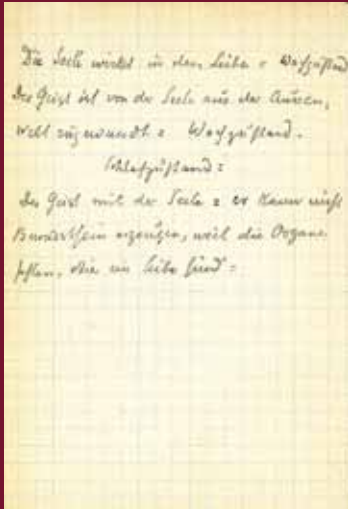 Die Seele wirkt in dem Leibe = Wachzustand
Der Geist ist von der Seele aus der Aussen,
welt zugewandt = Wachzustand.
Schlafzustand =
Der Geist mit der Seele = er kann nicht
Bewusstsein erzeugen, weil die Organe
fehlen, die im Leibe sind =